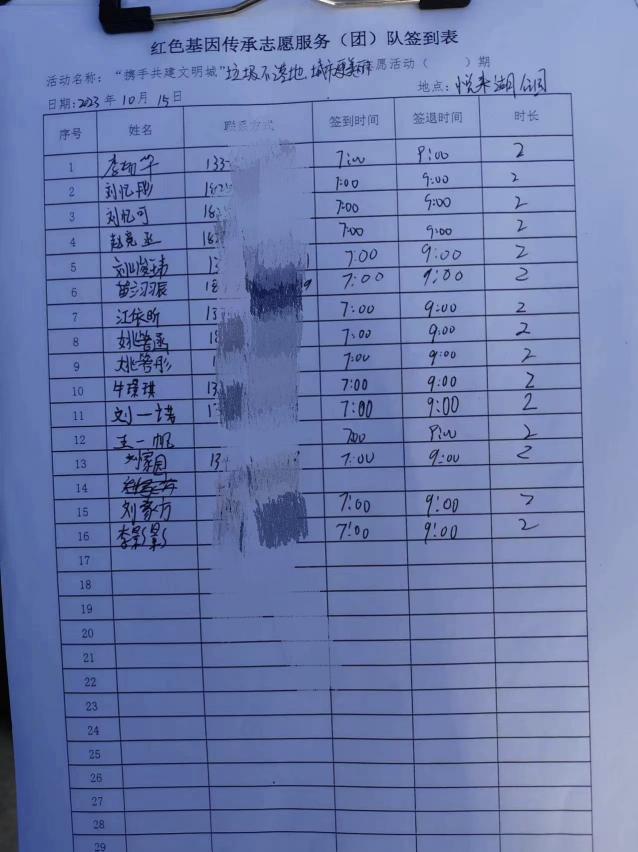 红色基因传承志愿服务（团）队签到表
活动名称：“携手共建文明城”垃圾不落地 城市更美丽志愿活动（ ）期
日期：2023年10月15日 地点：悦来湖公园
序号 姓名 联系方式 签到时间 签退时间 时长
1 7:00 9:00 2
2 刘忆 7:00 9:00 2
3 刘忆可 7:00 9:00 2
4 7:00 9:00 2
5 7:00 9:00 2
6 7:00 9:00 2
7 江依昕 7:00 9:00 2
8 姚 7:00 9:00 2
9 姚 7:00 9:00 2
10 牛璟琪 7:00 9:00 2
11 刘一诺 7:00 9:00 2
12 王一帆 7:00 9:00 2
13 刘家园 7:00 9:00 2
14
15 刘 7:00 9:00 2
16 李影影 7:00 9:00 2
17
18
19
20
21
22
23
24
25
26
27
28
29